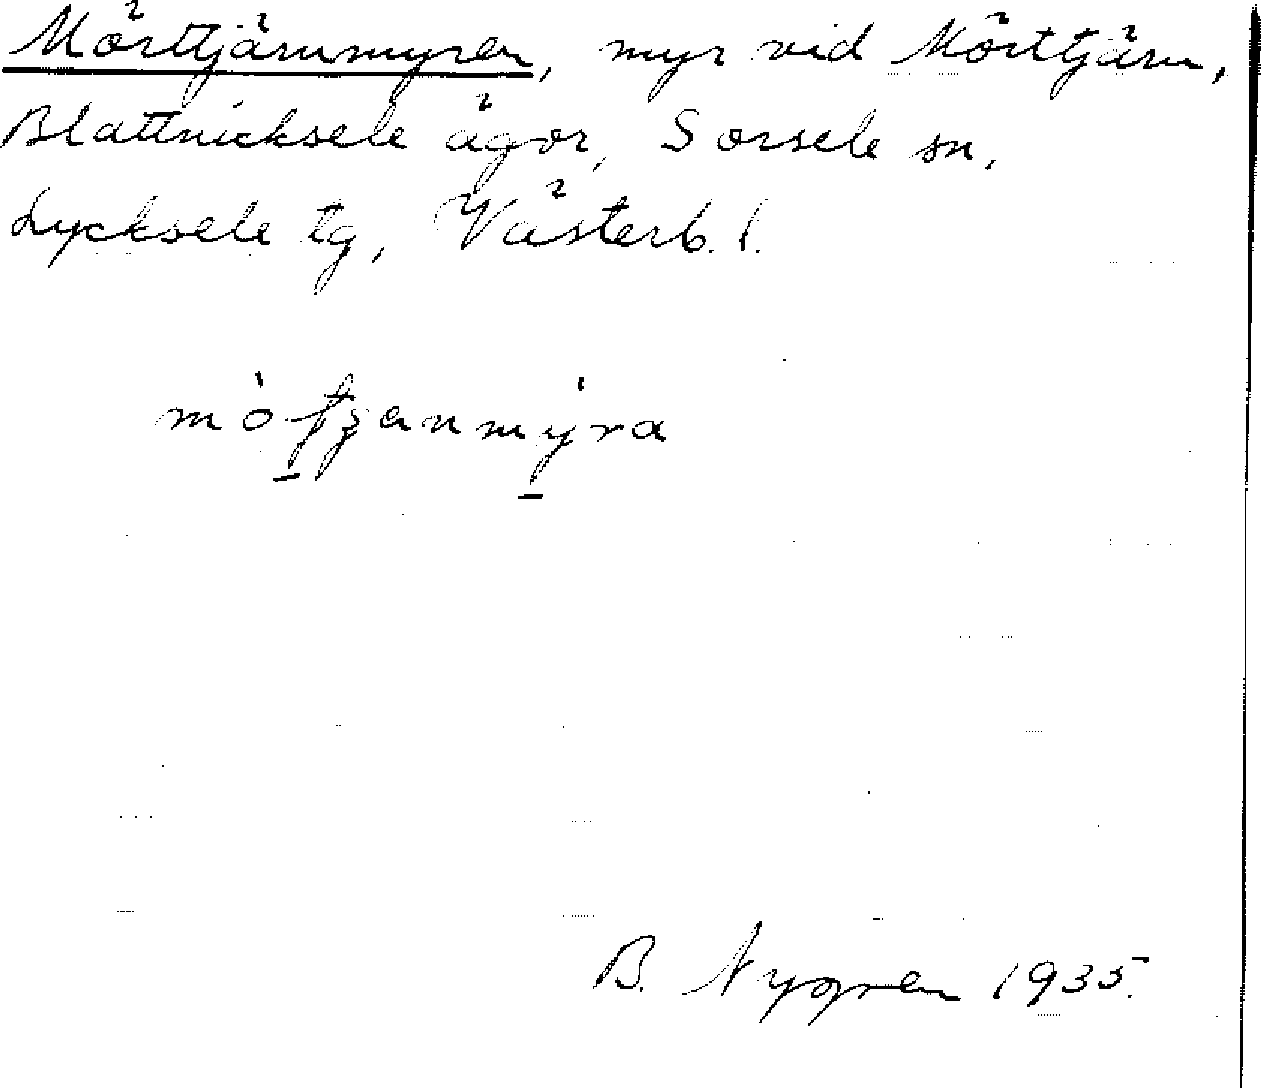 Mörttjärnmyren, myr vid Mörttjärn,
Blattnicksele ägor, Sorsele sn,
Lycksele tg, Västerb. l.
B. Nygren 1935.